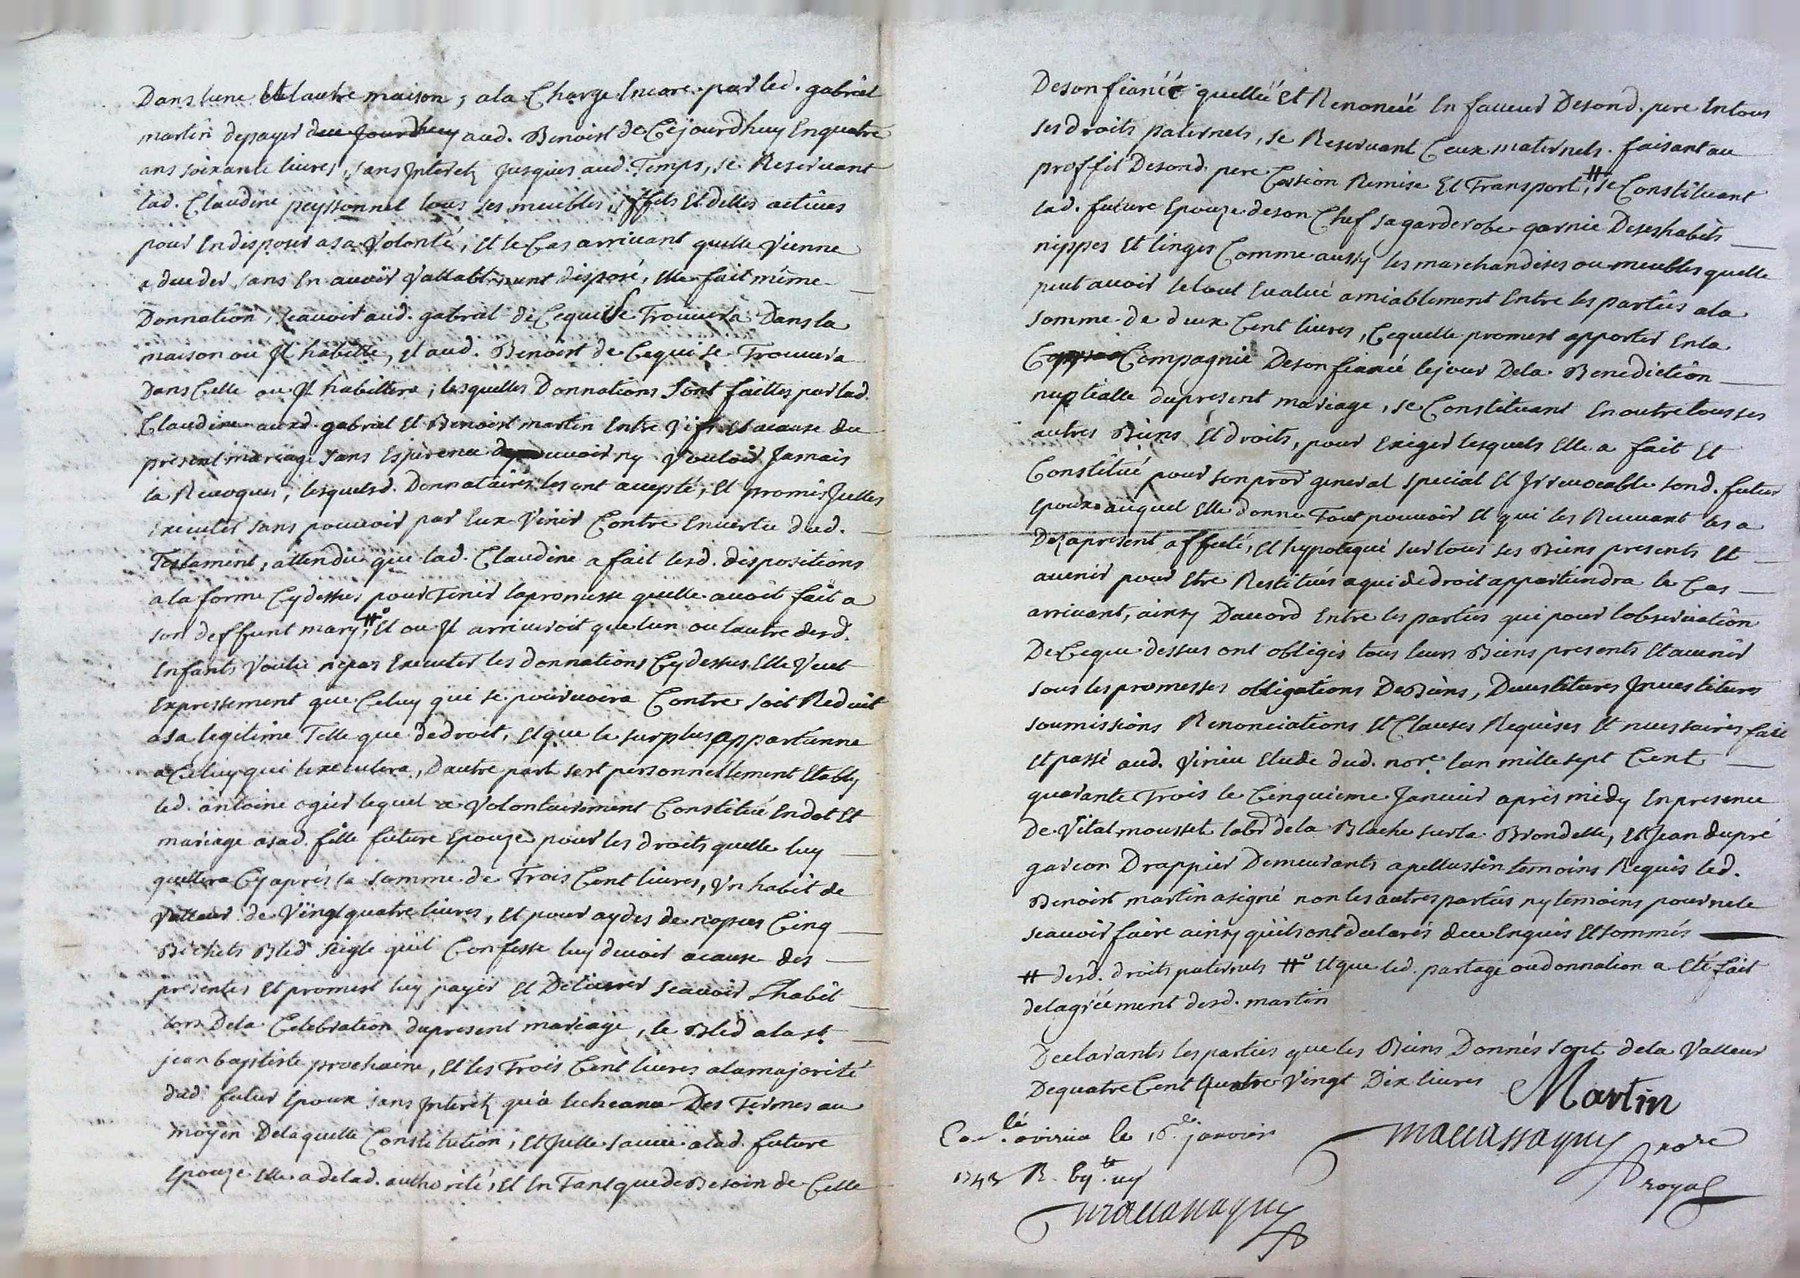 Dans lune et lautre maison, a la Charge Encore par led. gabriel
martin depayer aud. Benoist de Cejourdhuy En quatre
ans soixante livres, sans Interetz jusques aud. Temps, se Reservant
lad. Claudine peyssonnel tous ses meubles, effets Et dettes actives
pour En disposer a sa Volonté, Et le Cas arrivant quelle Vienne
a deceder sans En avoir Vallablement disposé, Elle fait même
Donnation, scavoir aud. gabriel de Cequi se Trouvera Dans la
maison ou Jl habitte, Et aud. Benoist de Cequi se Trouvera
Dans Celle ou Jl habittera; lesquelles Donnations sont faittes par lad.
Claudine auxd. gabriel Et Benoist martin Entre Vifs Et acause du
present mariage sans Esperance de pouvoir ny Vouloir Jamais
la Revoquer, lesquelsd. Donnataires les ont accepté, Et promis Jcelles
Executer sans pouvoir par Eux Venir Contre En vertu dud.
Testament, attendu que lad. Claudine a fait lesd. dispositions
a la forme Cydessus pour Tenir la promesse quelle avoit fait a
son deffunt mary, # Et ou Jl arriveroit que lun ou lautre desd.
Enfants Voulu ne pas Executer les donnations Cydessus, Elle Veut
Expressement que Celuy qui se pourvoira Contre soit Reduit
a sa legitime Telle que de droit, Et que le surplus appartienne
a Celuy qui lexecutera, Dautre part sest personnellement Etably
led. antoine ogier lequel a Volontairement Constitué En dot Et
mariage a sad. fille future Epouze pour les droits quelle luy
quittera Cy après la somme de Trois Cent livres, Vn habit de
Valleur de Vingt quatre livres, Et pour aydes de nopces Cinq
Bichets Bled seigle quil Confesse luy devoir acause des
presentes Et promest luy payer Et Delivrer scavoir Lhabit
lors Dela Celebration dupresent mariage, le Bled a la st
jean baptiste prochaine, Et les Trois Cent livres a la majorité
dud. futur Epoux sans Interetz qu'a lecheance Des Termes au
moyen Delaquelle Constitution, Et Jcelle sauve a lad. future
Epouze Elle a delad. authorité, Et En Tant que de Besoin de Celle
De son fiancé quitté Et Renoncé En faveur Desond. pere En tous
ses droits paternels, se Reservant Ceux maternels. faisant au
proffit Desond. pere Cession Remise Et Transport, # se Constituant
lad. future Epouze de son Chef sa garderobe garnie Deses habits
nippes Et linges Comme aussy les marchandises ou meubles quelle
peut avoir le tout Evalué amiablement Entre les parties a la
somme de deux Cent livres, Cequelle promest apporter En la
Compagnie De son fiancé le jour De la Benediction
nuptialle dupresent mariage, se Constituant En outre tous ses
autres Biens Et droits, pour Exiger lesquels Elle a fait Et
Constitué pour son procr general special Et Jrrevocable sond. futur
Epoux auquel Elle donne Tout pouvoir Et qui les Recevant les a
Dez apresent affecté, Et hypotequé sur tous ses Biens presents Et
avenir pour Etre Restitués a qui de droit appartiendra le Cas
arrivant, ainsy Daccord Entre les parties qui pour lobservation
De Ceque dessus ont obligés tous leurs Biens presents Et avenir
sous les promesses obligations De Biens, Devestitures Jnvestitures
soumissions Renonciations Et Clauses Requises Et necessaires fait
Et passé aud. Virieu Etude dud. nore. lan mille sept Cent
quarante Trois le Cinquieme Janvier après midy En presence
De Vital mousset labr. dela Blache sur la Brondelle, Et Jean dupré
garcon Drappier Demeurants a pellussin temoins Requis led.
Benoist martin a signé non les autres parties ny temoins pour ne le
scavoir faire ainsy quils ont declarés de ce Enquis Et sommés
# desd. droits paternels # Et que led. partage ou donnation a Eté fait
delagréement desd. martin
Declarants les parties que les Biens Donnés sont de la Valleur
De quatre Cent Quatre Vingt Dix livres
Martin
a virieu le 16e janvier
1743 R.
royal